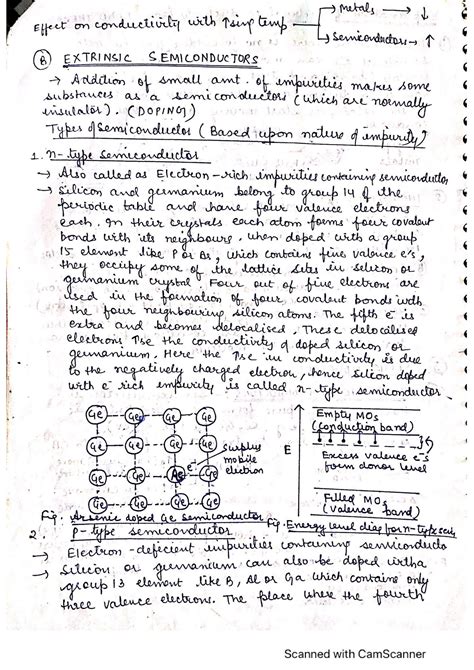 Effect on conductivity with ↑sing temp → metals → ↓
→ Semiconductors → ↑
(B) EXTRINSIC SEMICONDUCTORS
→ Addition of small amt. of impurities makes some
substances as a semiconductors (which are normally
insulator). (DOPING)
Types of Semiconductor (Based upon nature of impurity)
1. n-type semiconductor
→ Also called as Electron-rich impurities containing semiconductor
→ Silicon and germanium belong to group 14 of the
periodic table and have four valence electrons
each. In their crystals each atom forms four covalent
bonds with its neighbours. When doped with a group
15 element like P or As, which contains five valence e⁻s,
they occupy some of the lattice sites in silicon or
germanium crystal. Four out of five electrons are
used in the formation of four covalent bonds with
the four neighbouring silicon atoms. The fifth e⁻ is
extra and becomes delocalised. These delocalised
electrons ↑se the conductivity of doped silicon or
germanium. Here the ↑se in conductivity is due
to the negatively charged electron, hence silicon doped
with e⁻ rich impurity is called n-type semiconductor
Ge Ge Ge Ge
Ge Ge Ge Ge
Ge Ge As Ge
Ge Ge Ge Ge
e⁻
surplus
mobile
electron
E
Empty MOs
(conduction band)
Excess valence e⁻s
form donor level
Filled MOs
(valence band)
Fig. Arsenic doped Ge semiconductor
Fig. Energy level diag for n-type
2. p-type semiconductor
→ Electron-deficient impurities containing semiconducto
→ Silicon or germanium can also be doped with a
group 13 element like B, Al or Ga which contains only
three valence electrons. The place where the fourth
Scanned with CamScanner